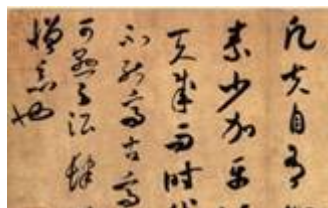 凡夫自有
素少加平
天成而時代
不能高古高
可懸之酒肆
憎惡也